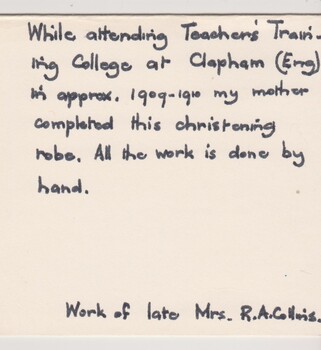 While attending Teacher's Train-
ing College at Clapham (Eng)
in approx. 1909-1910 my mother
completed this christening
robe. All the work is done by
hand.
Work of late Mrs. R.A.Collins.